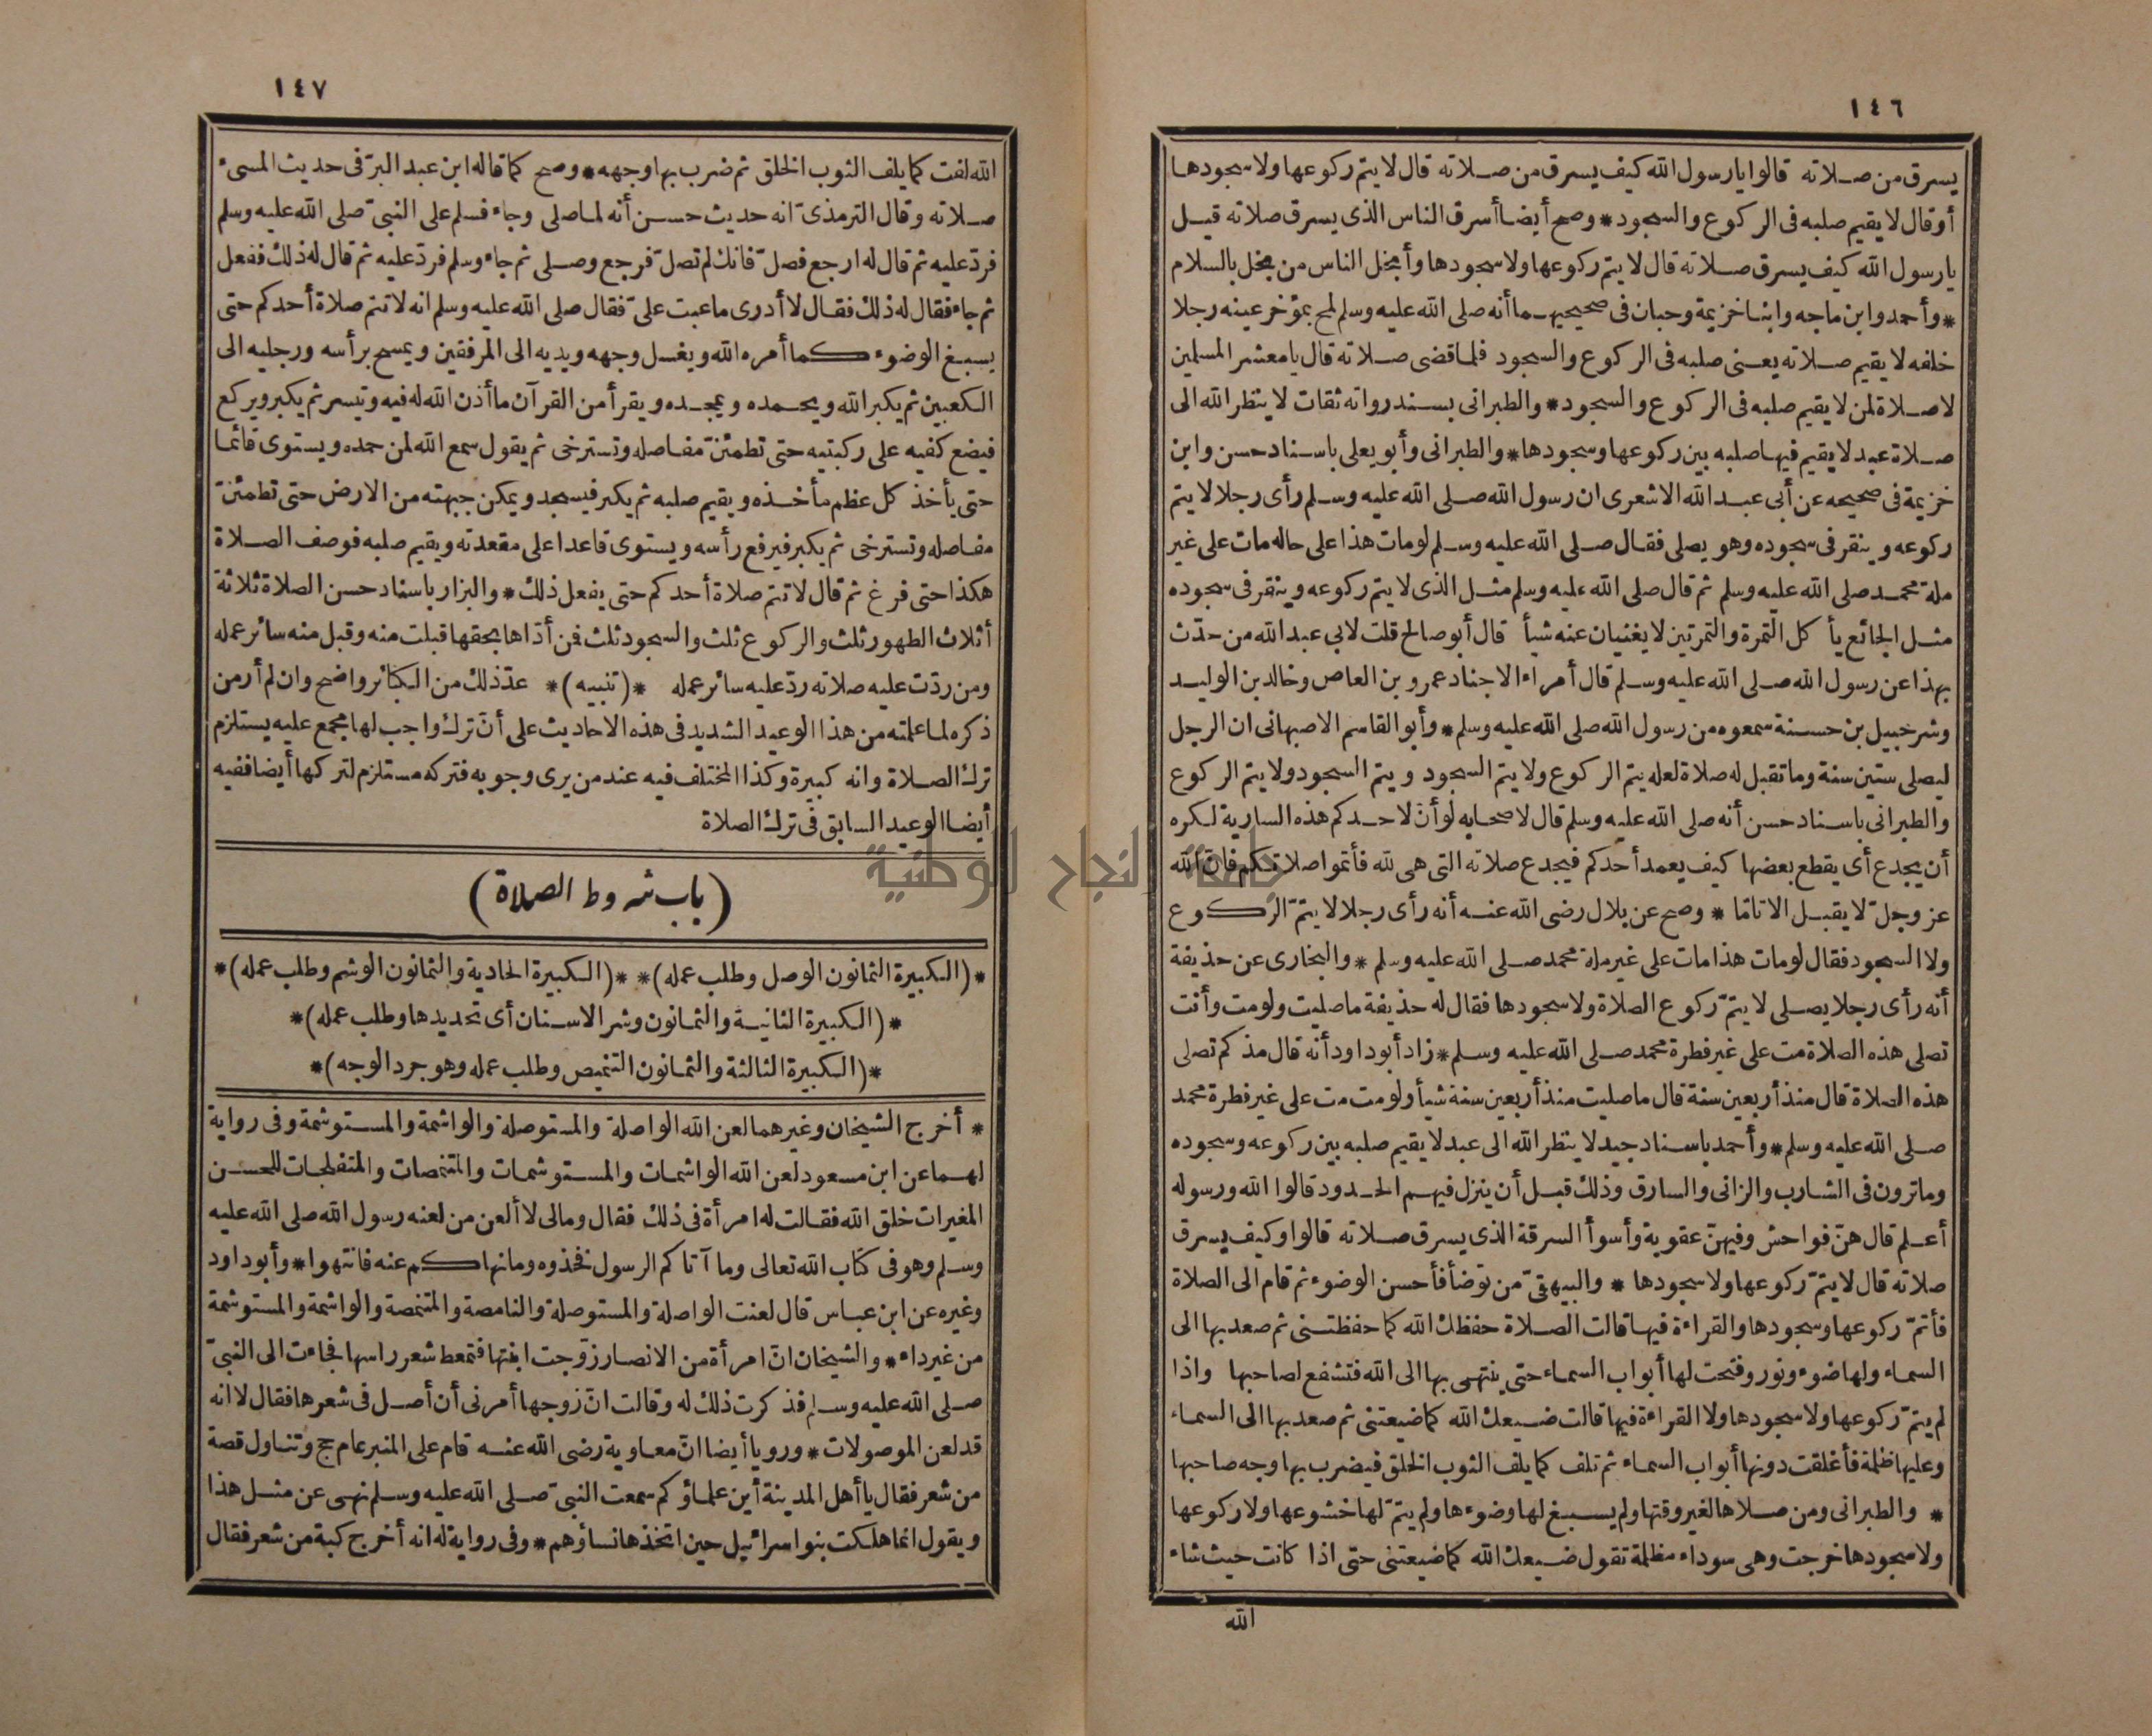 ١٤٦
يسرق من صلاته قالوا يارسول الله كيف يسرق من صلاته قال لا يتم ركوعها ولا سجودها
أو قال لا يقيم صلبه فى الركوع والسجود * وصح أيضا أسرق الناس الذى يسرق صلاته قيل
يارسول الله كيف يسرق صلاته قال لا يتم ركوعها ولا سجودها وأبخل الناس من بخل بالسلام
* وأحمد وابن ماجه وابنا خزيمة وحبان فى صحيحيهما أنه صلى الله عليه وسلم لمح بمؤخر عينه رجلا
خلفه لا يقيم صلاته يعنى صلبه فى الركوع والسجود فلما قضى صلاته قال يا معشر المسلمين
لا صلاة لمن لا يقيم صلبه فى الركوع والسجود * والطبرانى بسند رواته ثقات لا ينظر الله الى
صلاة عبد لا يقيم فيها صلبه بين ركوعها وسجودها * والطبرانى وأبو يعلى باسناد حسن وابن
خزيمة فى صحيحه عن أبى عبد الله الاشعرى ان رسول الله صلى الله عليه وسلم رأى رجلا لا يتم
ركوعه وينقر فى سجوده وهو يصلى فقال صلى الله عليه وسلم لو مات هذا على حاله مات على غير
ملة محمد صلى الله عليه وسلم ثم قال صلى الله عليه وسلم مثل الذى لا يتم ركوعه وينقر فى سجوده
مثل الجائع يأكل التمرة والتمرتين لا يغنيان عنه شيأ قال أبو صالح قلت لابى عبد الله من حدّث
بهذا عن رسول الله صلى الله عليه وسلم قال أمراء الاجناد عمرو بن العاص وخالد بن الوليد
وشرحبيل بن حسنة سمعوه من رسول الله صلى الله عليه وسلم * وأبو القاسم الاصبهانى ان الرجل
ليصلى ستين سنة وما تقبل له صلاة لعله يتم الركوع ولا يتم السجود ويتم السجود ولا يتم الركوع
والطبرانى باسناد حسن أنه صلى الله عليه وسلم قال لاصحابه لو أنّ لاحدكم هذه السارية لكره
أن يجدع أى يقطع بعضها كيف يعمد أحدكم فيجدع صلاته التى هى لله فأتموا صلاتكم فانّ الله
عز وجلّ لا يقبل الا تامّا * وصح عن بلال رضى الله عنه أنه رأى رجلا لا يتمّ الركوع
ولا السجود فقال لو مات هذا مات على غير ملة محمد صلى الله عليه وسلم * والبخارى عن حذيفة
أنه رأى رجلا يصلى لا يتمّ ركوع الصلاة ولا سجودها فقال له حذيفة ما صليت ولو مت وأنت
تصلى هذه الصلاة مت على غير فطرة محمد صلى الله عليه وسلم * زاد أبو داود أنه قال مذكم تصلى
هذه الصلاة قال منذ أربعين سنة قال ما صليت منذ أربعين سنة شيأ ولو مت مت على غير فطرة محمد
صلى الله عليه وسلم * وأحمد باسناد جيد لا ينظر الله الى عبد لا يقيم صلبه بين ركوعه وسجوده
وما ترون فى الشارب والزانى والسارق وذلك قبل أن ينزل فيهم الحدود قالوا الله ورسوله
أعلم قال هنّ فواحش وفيهنّ عقوبة وأسوأ السرقة الذى يسرق صلاته قالوا وكيف يسرق
صلاته قال لا يتمّ ركوعها ولا سجودها * والبيهقىّ من توضأ فأحسن الوضوء ثم قام الى الصلاة
فأتمّ ركوعها وسجودها والقراءة فيها قالت الصلاة حفظك الله كما حفظتنى ثم صعد بها الى
السماء ولها ضوء ونور وفتحت لها أبواب السماء حتى ينتهى بها الى الله فتشفع لصاحبها واذا
لم يتمّ ركوعها ولا سجودها ولا القراءة فيها قالت ضيعك الله كما ضيعتنى ثم صعد بها الى السماء
وعليها ظلمة فأغلقت دونها أبواب السماء ثم تلف كما يلف الثوب الخلق فيضرب بها وجه صاحبها
* والطبرانى ومن صلاها لغير وقتها ولم يسبغ لها وضوءها ولم يتمّ لها خشوعها ولا ركوعها
ولا سجودها خرجت وهى سوداء مظلمة تقول ضيعك الله كما ضيعتنى حتى اذا كانت حيث شاء
الله
١٤٧
الله لفت كما يلف الثوب الخلق ثم ضرب بها وجهه * وصح كما قاله ابن عبد البرّ فى حديث المسىء
صلاته وقال الترمذىّ انه حديث حسن أنه لما صلى وجاء فسلم على النبىّ صلى الله عليه وسلم
فردّ عليه ثم قال له ارجع فصلّ فانك لم تصلّ فرجع وصلى ثم جاء وسلم فردّ عليه ثم قال له ذلك ففعل
ثم جاء فقال له ذلك فقال لا أدرى ما عبت علىّ فقال صلى الله عليه وسلم انه لا تتم صلاة أحدكم حتى
يسبغ الوضوء كما أمره الله ويغسل وجهه ويديه الى المرفقين ويمسح برأسه ورجليه الى
الكعبين ثم يكبر الله ويحمده ويمجده ويقرأ من القرآن ما أذن الله له فيه وتيسر ثم يكبر ويركع
فيضع كفيه على ركبتيه حتى تطمئنّ مفاصله وتسترخى ثم يقول سمع الله لمن حمده ويستوى قائما
حتى يأخذ كل عظم مأخذه ويقيم صلبه ثم يكبر فيسجد ويمكن جبهته من الارض حتى تطمئنّ
مفاصله وتسترخى ثم يكبر فيرفع رأسه ويستوى قاعدا على مقعدته ويقيم صلبه فوصف الصلاة
هكذا حتى فرغ ثم قال لا تتم صلاة أحدكم حتى يفعل ذلك * والبزار باسناد حسن الصلاة ثلاثة
أثلاث الطهور ثلث والركوع ثلث والسجود ثلث فمن أدّاها بحقها قبلت منه وقبل منه سائر عمله
ومن ردّت عليه صلاته ردّ عليه سائر عمله *(تنبيه)* عدّ ذلك من الكبائر واضح وان لم أر من
ذكره لما علمته من هذا الوعيد الشديد فى هذه الاحاديث على أنّ ترك واجب لها مجمع عليه يستلزم
ترك الصلاة وانه كبيرة وكذا المختلف فيه عند من يرى وجوبه فتركه مستلزم لتركها أيضا ففيه
أيضا الوعيد السابق فى ترك الصلاة
(باب شروط الصلاة)
*(الكبيرة الثمانون الوصل وطلب عمله)* *(الكبيرة الحادية والثمانون الوشم وطلب عمله)*
*(الكبيرة الثانية والثمانون وشر الاسنان أى تحديدها وطلب عمله)*
*(الكبيرة الثالثة والثمانون التنميص وطلب عمله وهو جرد الوجه)*
* أخرج الشيخان وغيرهما لعن الله الواصلة والمستوصلة والواشمة والمستوشمة وفى رواية
لهما عن ابن مسعود لعن الله الواشمات والمستوشمات والمتنمصات والمتفلجات للحسن
المغيرات خلق الله فقالت له امرأة فى ذلك فقال ومالى لا ألعن من لعنه رسول الله صلى الله عليه
وسلم وهو فى كتاب الله تعالى وما آتاكم الرسول فخذوه وما نهاكم عنه فانتهوا * وأبو داود
وغيره عن ابن عباس قال لعنت الواصلة والمستوصلة والنامصة والمتنمصة والواشمة والمستوشمة
من غير داء * والشيخان انّ امرأة من الانصار زوّجت ابنتها فتمعط شعر راسها فجاءت الى النبىّ
صلى الله عليه وسلم فذكرت ذلك له وقالت انّ زوجها أمرنى أن أصل فى شعرها فقال لا انه
قد لعن الموصولات * ورويا أيضا انّ معاوية رضى الله عنه قام على المنبر عام حج وتناول قصة
من شعر فقال يا أهل المدينة أين علماؤكم سمعت النبىّ صلى الله عليه وسلم نهى عن مثل هذا
ويقول انما هلكت بنو اسرائيل حين اتخذها نساؤهم * وفى رواية له انه أخرج كبة من شعر فقال
جامعة النجاح الوطنية